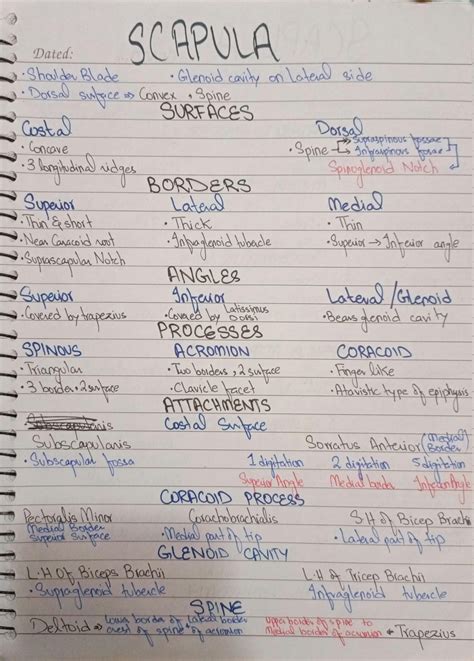 SCAPULA
Dated:
· Shoulder Blade · Glenoid cavity on lateral side
· Dorsal surface ⇒ Convex · Spine
SURFACES
Costal Dorsal
· Concave · Spine → Supraspinous fossae
· 3 longitudinal ridges → Infraspinous fossae
Spinoglenoid Notch
BORDERS
Superior Lateral Medial
· Thin & short · Thick · Thin
· Near Coracoid root · Infraglenoid tubercle · Superior → Inferior angle
· Suprascapular Notch
ANGLES
Superior Inferior Lateral / Glenoid
· Covered by trapezius · Covered by Latissimus Dorsi · Bears glenoid cavity
PROCESSES
SPINOUS ACROMION CORACOID
· Triangular · Two borders, 2 surface · Finger like
· 3 border, 2 surface · Clavicle facet · Atavistic type of epiphysis
ATTACHMENTS
Costal Surface
Subscapularis Serratus Anterior (Medial Border)
· Subscapular fossa 1 digitation 2 digitation 5 digitation
Superior Angle Medial border Inferior Angle
CORACOID PROCESS
Pectoralis Minor Corachobrachialis S.H of Bicep Brachii
Medial Border · Medial part of tip · Lateral part of tip
Superior Surface
GLENOID CAVITY
L.H Of Biceps Brachii L.H of Tricep Brachii
· Supraglenoid tubercle Infraglenoid tubercle
SPINE
Deltoid → lower border of Lateral border Upper border of spine to → Trapezius
crest of spine of acromion Medial border of acromion